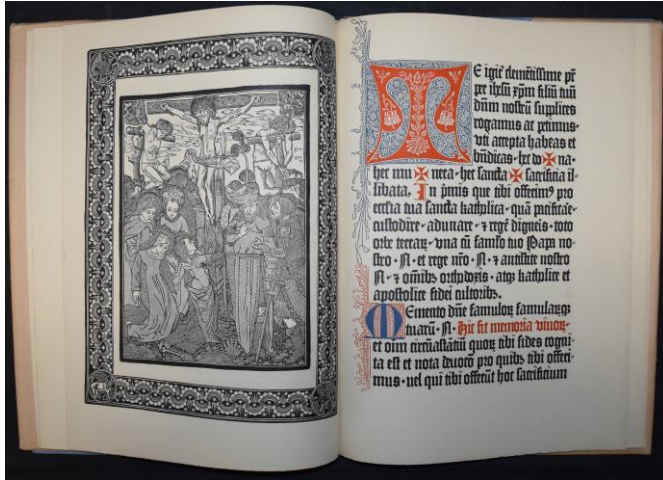 TE igit᷑ clemētissime pr̄
per ihſū xp̄m filiū tuū
dūm noſtrū ſupplices
rogamus ac petimus·
vti accepta habeas et
bn̄dicas· hec do✠na·
hec mu✠nera· hec ſancta✠ſacrificia il-
libata, In pͥmis que tibi offerimꝰ pro
eccl̄ia tua ſancta katholica· quā pacificāe·
cuſtodire· adunare· ⁊ regē digneis· toto
orbe terraꝝ· vna cū famľo tuo Papa no-
ſtro· N· et rege nr̄o· N· ⁊ antiſtite noſtro
N· ⁊ om̄ibꝫ orthodoxis· atqꝫ katholice et
apoſtolice fidei cultoribꝫ.
MEmento dn̄e famuloꝝ famularūqꝫ
tuarū· N· Hic fit memoria viuoꝝ·
et om̄ circūaſtātiū quoꝝ tibi fides cogni-
ta eſt et nota deuoto pro quibꝫ tibi offeri-
mus· uel qui tibi offerūt hoc ſacrificium